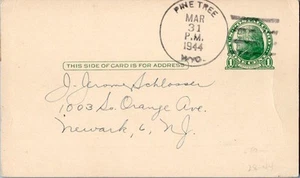 PINE TREE
MAR
31
P.M.
1944
WYO.
THIS SIDE OF CARD IS FOR ADDRESS
1 1
J. Jerome Schlosser
1003 So. Orange Ave.
Newark, 6, N.J.